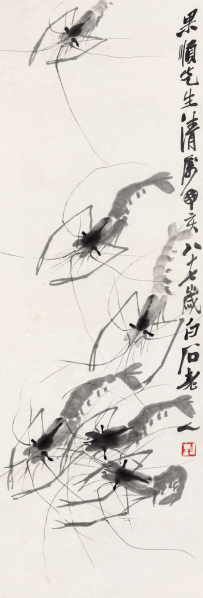 果順先生清屬丁亥八十七歲白石老人